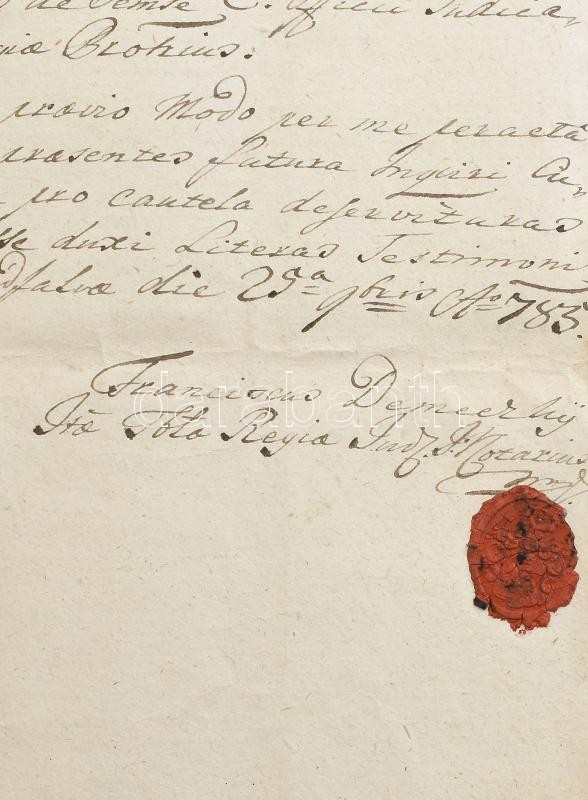 de Semse C. Officii Judica,
Prothus.
prævio Modo per me peracta
præsentes futura inqviri Cu,
pro cautela deservituras
duxi Literas Testimoni
falvæ die 25ª 9bris Aº 783.
Franciscus Demeczkij
Ittæ Tblæ Regiæ Jud. J. Notarius
mpr.
darabanth